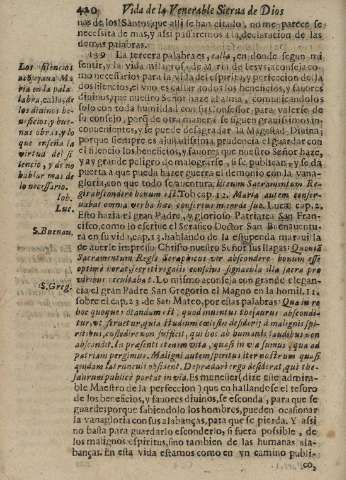 420 Vida de la Venerable Sierva de Dios
nas de los Santos, que alli se han citado, no me parece se
necessita de mas, y assi passaremos a la declaracion de las
demas palabras.
139 La tercera palabra es, calla, en donde segun mi
sentir, y la vida milagrosa
no para la vida del espiritu, y perfeccion de la
dos silencios, el vno es callar todos los beneficios, y favores
divinos, que nuestro Señor haze al alma, comunicandolos
solo con toda humildad con su Confessor, para valerse de
su consejo, porq̃ de otra manera se siguen gravissimos in-
convenientes, y se puede desagradar la Magestad Divina;
porque siempre es ajustadissima, prudencia el guardar con
el silencio los beneficios, y favores que nuestro Señor haze,
y ay gran peligro de malograrse, si se publican, y se da
puerta a que pueda hazer guerra el demonio con la vana-
gloria, con que todo se aventura,
Tob. cap. 12. Maria autem conser-
vabat omnia verba hæc conferens in corde suo. Lucæ cap. 2.
Esto hazia el gran Padre, y glorioso Patriarca San Fran-
cisco, como lo escrive el Serafico Doctor San Buenaventu-
ra en su vid. cap. 13. hablando de la
de autor le imprimiò Christo nuestro Señor sus llagas: Quoniã
Sacramentum Regis Seraphicus vir abscondere bonum esse
optime
Lo mismo aconseja con grande elegan-
cia el gran Padre San Gregorio el Magno en la homil. 11.
sobre el cap. 13. de San Mateo, por estas palabras: Quia in
hoc quoque notandum est, quod inventus thesaurus abscondi-
tur, vt servetur, quia studium cælestis desiderij à malignis spi-
ritibus custodire non sufficit, qui hoc ab humanis laudibus non
abscondit. In præsenti etenim vita, quasi in via sumus, qua ad
patriam pergimus. Maligni autem spiritus iter nostrum quasi
quidam latrunculi obsident. Deprædari ergo desiderat, qui the-
saurum publicè portat in via. Es menester (dize este admira-
ble Maestro de la perfeccion) que en hallandose el tesoro
de los beneficios, y favores divinos, se esconda, para que se
guarde; porque sabiendolo los hombres, pueden ocasionar
la vanagloria con sus alabanças, para que se pierda. Y assi
no basta para guardarlo esconderlo, si fuera possible, de
los malignos espiritus, sino tambien de las humanas ala-
banças. En esta vida estamos como en vn camino publi-
co,
Los silencios
Maria en la pala-
labra, calla, de
los divinos be-
neficios, y bue-
nas obras, y lo
que enseña la
virtud del si-
lencio, y de no
hablar mas de
lo necessario.
Tob.
Luc.
S. Buenav.
S. Greg.